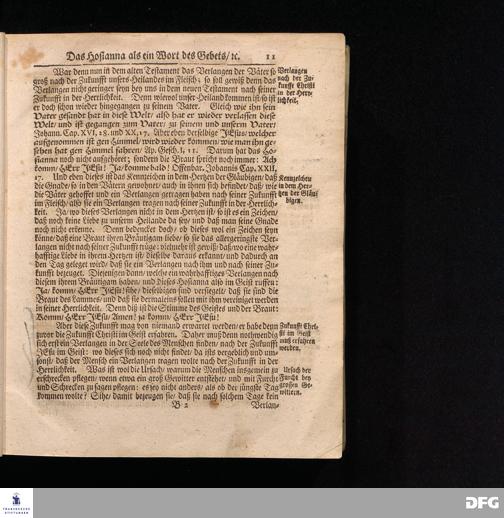 Das Hosianna als ein Wort des Gebets/ ꝛc. 11
War denn nun in dem alten Testament das Verlangen der Väter so
groß nach der Zukunfft unsers Heilandes im Fleisch; so soll gewiß denn das
Verlangen nicht geringer seyn bey uns in dem neuen Testament nach seiner
Zukunfft in der Herrlichkeit. Denn wiewol unser Heiland kommen ist/ so ist
er doch schon wieder hingegangen zu seinem Vater. Gleich wie ihn sein
Vater gesandt hat in diese Welt/ also hat er wieder verlassen diese
Welt/ und ist gegangen zum Vater/ zu seinem und unserm Vater/
Johann. Cap. XVI, 28. und XX, 17. Aber eben derselbige JEsus/ welcher
aufgenommen ist gen Himmel/ wird wieder kommen/ wie man ihn ge-
sehen hat gen Himmel fahren/ Ap. Gesch. I, 11. Darum hat das Ho-
sianna noch nicht aufgehöret; sondern die Braut spricht noch immer: Ach
komm/ HErr JEsu! Ja/ komme bald! Offenbar. Johannis Cap. XXII,
17. Und eben dieses ist das Kennzeichen in dem Hertzen der Gläubigen/ daß
die Gnade/ so in den Vätern gewohnet/ auch in ihnen sich befindet/ daß/ wie
die Väter gehoffet und ein Verlangen getragen haben nach seiner Zukunfft
im Fleisch/ also sie ein Verlangen tragen nach seiner Zukunfft in der Herrlich-
keit. Ja/ wo dieses Verlangen nicht in dem Hertzen ist/ so ist es ein Zeichen/
daß noch keine Liebe zu unserm Heilande da sey/ und daß man seine Gnade
noch nicht erkenne. Denn bedencket doch/ ob dieses wol ein Zeichen seyn
könne/ daß eine Braut ihren Bräutigam liebe/ so sie das allergeringste Ver-
langen nicht nach seiner Zukunfft trüge: vielmehr ist gewiß/ daß/ wo eine wahr-
hafftige Liebe in ihrem Hertzen ist/ dieselbe daraus erkannt/ und dadurch an
den Tag geleget wird/ daß sie ein Verlangen nach ihm und nach seiner Zu-
kunfft bezeuget. Diejenigen dann/ welche ein wahrhafftiges Verlangen nach
diesem ihrem Bräutigam haben/ und dieses Hosianna also im Geist ruffen:
Ja/ komm/ HErr JEsu! sihe/ dieselbigen sind versiegelt/ daß sie sind die
Braut des Lammes/ und daß sie dermaleins sollen mit ihm vereiniget werden
in seiner Herrlichkeit. Denn diß ist die Stimme des Geistes und der Braut:
Komm/ HErr JEsu/ Amen! ja komm/ HErr JEsu!
Aber diese Zukunfft mag von niemand erwartet werden/ er habe denn
zuvor die Zukunfft Christi im Geist erfahren. Daher muß denn nothwendig
sich erst ein Verlangen in der Seele des Menschen finden/ nach der Zukunfft
JEsu im Geist: wo dieses sich noch nicht findet/ da ists vergeblich und um-
sonst/ daß der Mensch ein Verlangen tragen wolte nach der Zukunfft in der
Herrlichkeit. Was ist wol die Ursach/ warum die Menschen insgemein zu
erschrecken pflegen/ wenn etwa ein groß Gewitter entstehet/ und mit Furcht
und Schrecken zu sagen pflegen: es sey nicht anders/ als ob der jüngste Tag
kommen wolte? Sihe/ damit bezeugen sie/ daß sie nach solchem Tage kein
B 2 Verlan-
Verlangen
nach der Zu-
kunfft Christi
in der Herr-
lichkeit.
Kennzeichen
in dem Her-
tzen der Gläu-
bigen.
Zukunfft Chri-
sti im Geist
muß erfahren
werden.
Ursach der
Furcht bey
grossen Ge-
wittern.
FRANCKESCHE
STIFTUNGEN
DFG